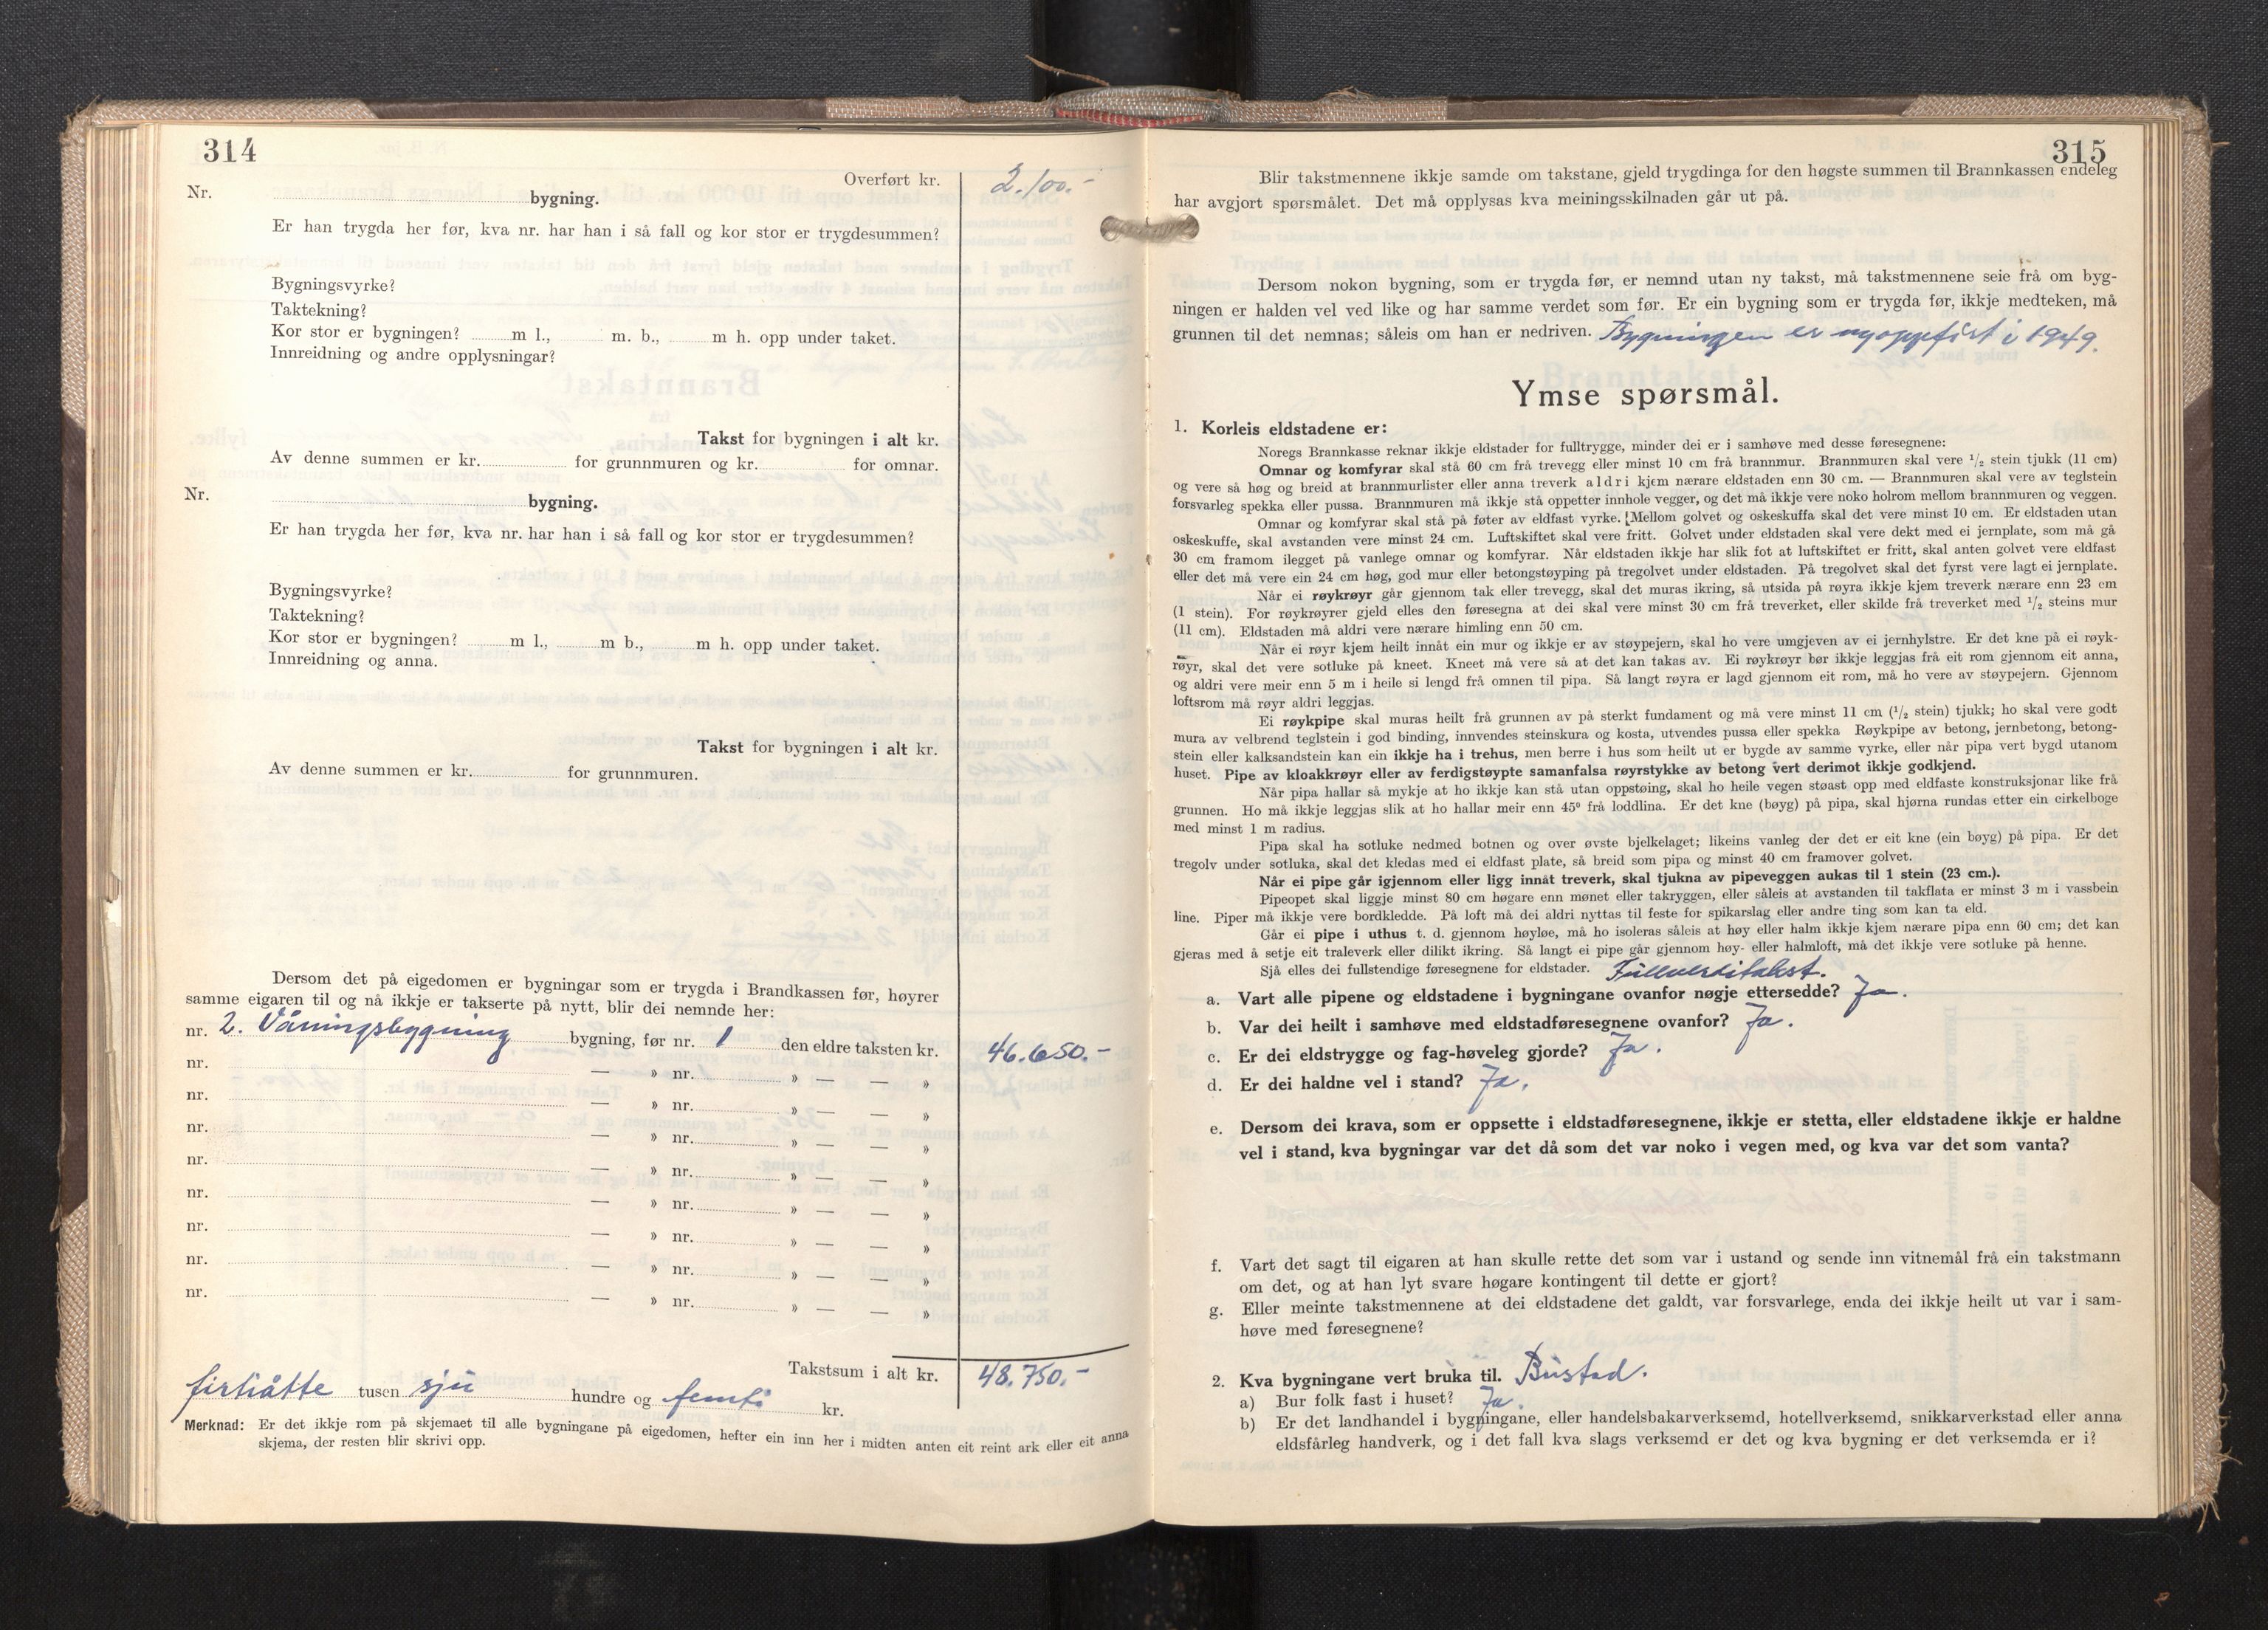 314
Overført kr. 2.100.-
Nr. bygning.
Er han trygda her før, kva nr. har han i så fall og kor stor er trygdesummen?
Bygningsvyrke?
Taktekning?
Kor stor er bygningen? m l., m. b., m h. opp under taket.
Innreidning og andre opplysningar?
Takst for bygningen i alt kr.
Av denne summen er kr. for grunnmuren og kr. for omnar.
Nr. bygning.
Er han trygda her før, kva nr. har han i så fall og kor stor er trygdesummen?
Bygningsvyrke?
Taktekning?
Kor stor er bygningen? m l., m b., m h. opp under taket.
Innreidning og anna.
Takst for bygningen i alt kr.
Av denne summen er kr. for grunnmuren.
Dersom det på eigedomen er bygningar som er trygda i Brandkassen før, høyrer
samme eigaren til og nå ikkje er takserte på nytt, blir dei nemnde her:
nr. 2. Våningsbygning bygning, før nr. 1 den eldre taksten kr. 46.650.-
nr. — » nr. » — — »
nr. — » nr. » — — »
nr. — » nr. » — — »
nr. — » nr. » — — »
nr. — » nr. » — — »
nr. — » nr. » — — »
nr. — » nr. » — — »
nr. — » nr. » — — »
Takstsum i alt kr. 48.750.-
førtiåtte tusen sju hundre og femti kr.
Merknad: Er det ikkje rom på skjemaet til alle bygningane på eigedomen, hefter ein inn her i midten anten eit reint ark eller eit anna
skjema, der resten blir skrivi opp.
315
Blir takstmennene ikkje samde om takstane, gjeld trygdinga for den høgste summen til Brannkassen endeleg
har avgjort spørsmålet. Det må opplysas kva meiningsskilnaden går ut på.
Dersom nokon bygning, som er trygda før, er nemnd utan ny takst, må takstmennene seie frå om byg-
ningen er halden vel ved like og har samme verdet som før. Er ein bygning som er trygda før, ikkje medteken, må
grunnen til det nemnas; såleis om han er nedriven. Bygningen er nyoppført i 1949.
Ymse spørsmål.
1. Korleis eldstadene er:
Noregs Brannkasse reknar ikkje eldstader for fulltrygge, minder dei er i samhøve med desse føresegnene:
Omnar og komfyrar skal stå 60 cm frå trevegg eller minst 10 cm frå brannmur. Brannmuren skal vere 1/2 stein tjukk (11 cm)
og vere så høg og breid at brannmurlister eller anna treverk aldri kjem nærare eldstaden enn 30 cm. — Brannmuren skal vere av teglstein
forsvarleg spekka eller pussa. Brannmuren må ikkje stå oppetter innhole vegger, og det må ikkje vere noko holrom mellom brannmuren og veggen.
Omnar og komfyrar skal stå på føter av eldfast vyrke. Mellom golvet og oskeskuffa skal det vere minst 10 cm. Er eldstaden utan
oskeskuffe, skal avstanden vere minst 24 cm. Luftskiftet skal vere fritt. Golvet under eldstaden skal vere dekt med ei jernplate, som må gå
30 cm framom ilegget på vanlege omnar og komfyrar. Når eldstaden ikkje har slik fot at luftskiftet er fritt, skal anten golvet vere eldfast
eller det må vere ein 24 cm høg, god mur eller betongstøyping på tregolvet under eldstaden. På tregolvet skal det fyrst vere lagt ei jernplate.
Når ei røykrøyr går gjennom tak eller trevegg, skal det muras ikring, så utsida på røyra ikkje kjem treverk nærare enn 23 cm
(1 stein). For røykrøyrer gjeld elles den føresegna at dei skal vere minst 30 cm frå treverket, eller skilde frå treverket med 1/2 steins mur
(11 cm). Eldstaden må aldri vere nærare himling enn 50 cm.
Når ei røyr kjem heilt innåt ein mur og ikkje er av støypejern, skal ho vere umgjeven av ei jernhylstre. Er det kne på ei røyk-
røyr, skal det vere sotluke på kneet. Kneet må vere så at det kan takas av. Ei røykrøyr bør ikkje leggjas frå eit rom gjennom eit anna,
og aldri vere meir enn 5 m i heile si lengd frå omnen til pipa. Så langt røyra er lagd gjennom eit rom, må ho vere av støypejern. Gjennom
loftsrom må røyr aldri leggjas.
Ei røykpipe skal muras heilt frå grunnen av på sterkt fundament og må vere minst 11 cm (1/2 stein) tjukk; ho skal vere godt
mura av velbrend teglstein i god binding, innvendes steinskura og kosta, utvendes pussa eller spekka Røykpipe av betong, jernbetong, betong-
stein eller kalksandstein kan ein ikkje ha i trehus, men berre i hus som heilt ut er bygde av samme vyrke, eller når pipa vert bygd utanom
huset. Pipe av kloakkrøyr eller av ferdigstøypte samanfalsa røyrstykke av betong vert derimot ikkje godkjend.
Når pipa hallar så mykje at ho ikkje kan stå utan oppstøing, skal ho heile vegen støast opp med eldfaste konstruksjonar like frå
grunnen. Ho må ikkje leggjas slik at ho hallar meir enn 45° frå loddlina. Er det kne (bøyg) på pipa, skal hjørna rundas etter ein cirkelboge
med minst 1 m radius.
Pipa skal ha sotluke nedmed botnen og over øvste bjelkelaget; likeins vanleg der det er eit kne (ein bøyg) på pipa. Er det
tregolv under sotluka, skal det kledas med ei eldfast plate, så breid som pipa og minst 40 cm framover golvet.
Når ei pipe går igjennom eller ligg innåt treverk, skal tjukna av pipeveggen aukas til 1 stein (23 cm.).
Pipeopet skal liggje minst 80 cm høgare enn mønet eller takryggen, eller såleis at avstanden til takflata er minst 3 m i vassbein
line. Piper må ikkje vere bordkledde. På loft må dei aldri nyttas til feste for spikarslag eller andre ting som kan ta eld.
Går ei pipe i uthus t. d. gjennom høyløe, må ho isoleras såleis at høy eller halm ikkje kjem nærare pipa enn 60 cm; det kan
gjeras med å setje eit traleverk eller dilikt ikring. Så langt ei pipe går gjennom høy- eller halmloft, må det ikkje vere sotluke på henne.
Sjå elles dei fullstendige føresegnene for eldstader. Fullverditakst.
a. Vart alle pipene og eldstadene i bygningane ovanfor nøgje ettersedde? Ja.
b. Var dei heilt i samhøve med eldstadføresegnene ovanfor? Ja.
c. Er dei eldstrygge og fag-høveleg gjorde? Ja.
d. Er dei haldne vel i stand? Ja.
e. Dersom dei krava, som er oppsette i eldstadføresegnene, ikkje er stetta, eller eldstadene ikkje er haldne
vel i stand, kva bygningar var det då som det var noko i vegen med, og kva var det som vanta?
f. Vart det sagt til eigaren at han skulle rette det som var i ustand og sende inn vitnemål frå ein takstmann
om det, og at han lyt svare høgare kontingent til dette er gjort?
g. Eller meinte takstmennene at dei eldstadene det galdt, var forsvarlege, enda dei ikkje heilt ut var i sam-
høve med føresegnene?
2. Kva bygningane vert bruka til. Bustad.
a) Bur folk fast i huset? Ja.
b) Er det landhandel i bygningane, eller handelsbakarverksemd, hotellverksemd, snikkarverkstad eller anna
eldsfårleg handverk, og i det fall kva slags verksemd er det og kva bygning er det verksemda er i?